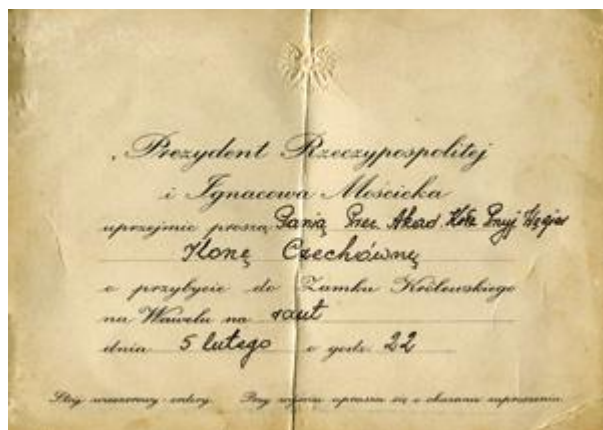 Prezydent Rzeczypospolitej
i Ignacowa Mościcka
uprzejmie proszą Panią Prez. Akad. Koła Przyj. Węgier
Ilonę Czechównę
o przybycie do Zamku Królewskiego
na Wawelu na raut
dnia 5 lutego o godz. 22
Strój wieczorowy - ordery. Przy wejściu uprasza się o okazanie zaproszenia.